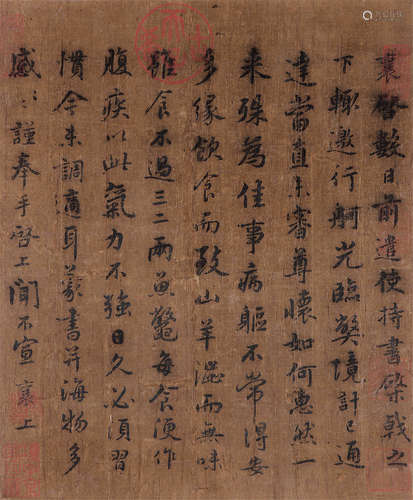 襄啓數日前遣使持書棨戟之
下輙邀行舸光臨獘境計已通
達當直未審尊懷如何惠然一
来殊為佳事病軀不常得安
多縁飲食而致山羊澁而無味
雖食不過三二兩魚鼈每食便作
腹疾以此氣力不強日久必須習
慣今未調適耳蒙書并海物多
感〻謹奉手啓上聞不宣襄上